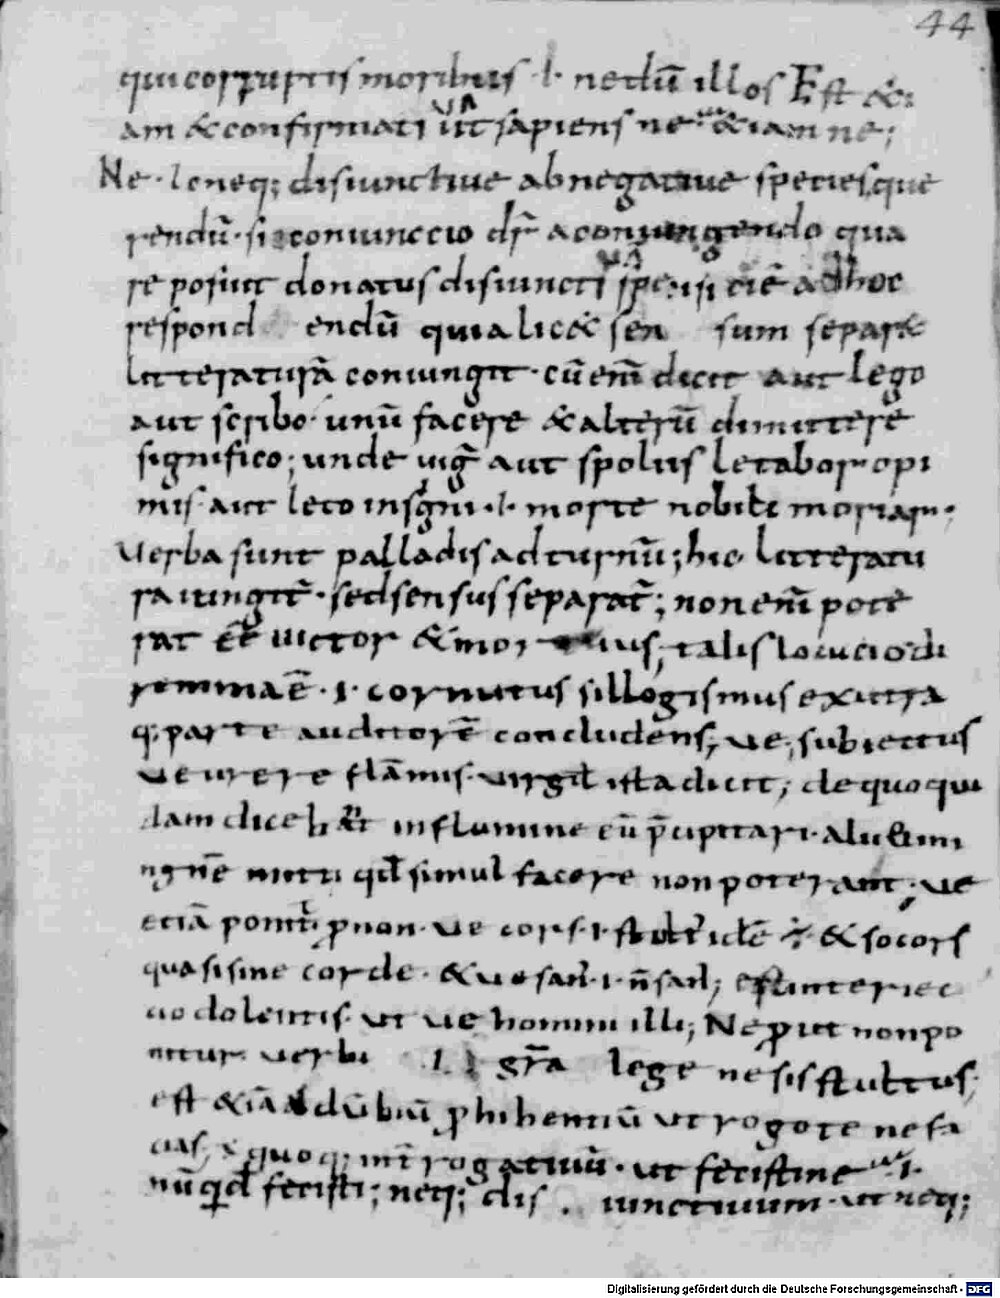 44
qui corruptis moribus ·ł· nedū illos Est &i
am & confirmati ut sapiens ne & iam ne;
Ne · ł· neq; disiunctiue abnegatiue species que
rendū · si coniunctio dr̄ a coniungendo qua
re posuit donatus disiuncti adhoc
respond endū quia lic& sen sum separ&
litteraturā coniungit · cū eni̅ dicit aut lego
aut scribo · unū facere & alterū dimittere
significo; unde uirḡ aut spoliis letabor opi
mis · aut leto insigni ·ł· morte nobili moriar;
Verba sunt palladis ad turnū; hic litteratu
ra iungit̄ · sed sensus separat̄; non eni̅ pote
rat ēē uictor & mor tuus; talis locucio di
remma ē · i · cornutus sillogismus ex utra
q; parte auditorē concludens; ue, subiectus
ve urere flāmis · virgil ista dicit; de quo qui
dam diceb in flumine eū p̄cipitari · alii
ne mitti qd̄ simul facere non poterant; ue
etiā ponit̄ ꝓ non · ve cors · i · stult & socors
quasi sine corde · & uesan · i · n̄ san; est interiec
tio dolentis · ut ue homini illi; Ne ꝓut non po
nitur verbi gr̄a lege ne sis stultus;
est & iā adūbiū ꝓhibentiū ut rogo te ne fa
cias; quoq; int̄rogatiuū · ut fecistine · i ·
nū qd̄ fecisti; neq; dis iunctiuum · ut neq;
Digitalisierung gefördert durch die Deutsche Forschungsgemeinschaft · DFG